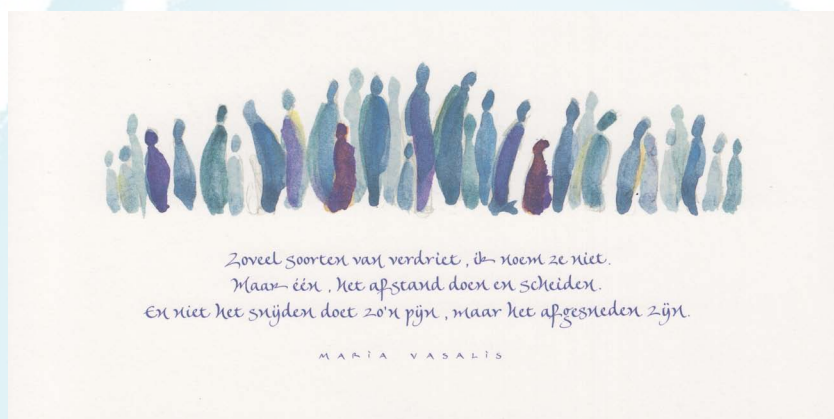 Zoveel soorten van verdriet, ik noem ze niet.
Maar één, het afstand doen en scheiden.
En niet het snijden doet zo'n pijn, maar het afgesneden zijn.
MARIA VASALIS